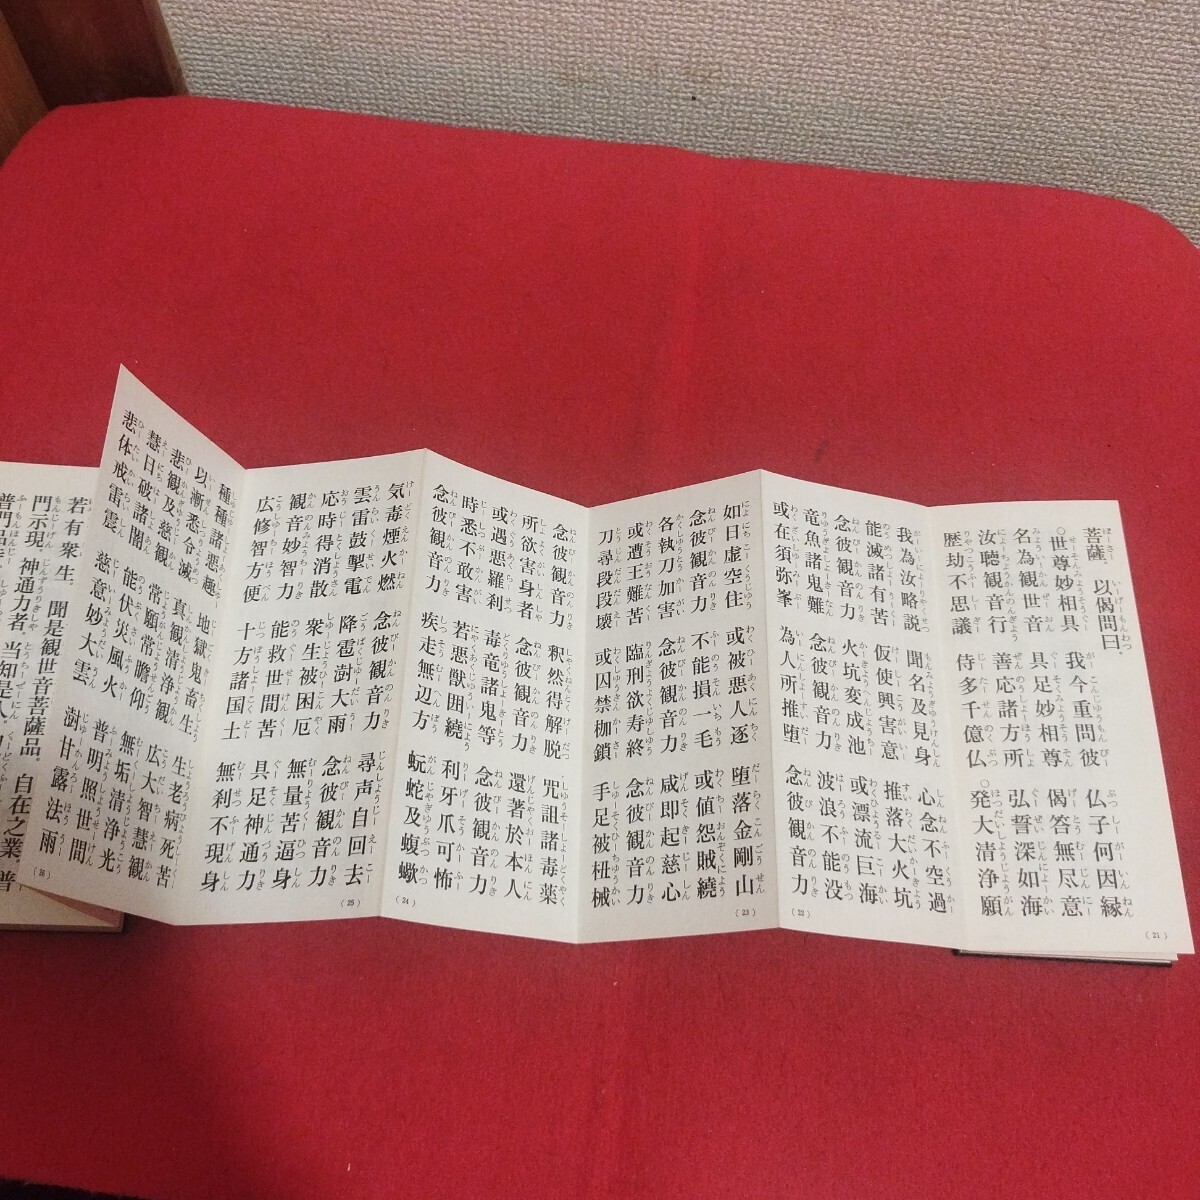 菩薩。以偈問曰。
○世尊妙相具 我今重問彼 仏子何因縁
名為観世音 具足妙相尊 偈答無尽意
汝聴観音行 善応諸方所 弘誓深如海
歴劫不思議 侍多千億仏 ○発大清浄願
(21)
我為汝略説 聞名及見身 心念不空過
能滅諸有苦 仮使興害意 推落大火坑
念彼観音力 火坑変成池 或漂流巨海
竜魚諸鬼難 念彼観音力 波浪不能没
或在須弥峯 為人所推堕 念彼観音力
(22)
如日虚空住 或被悪人逐 堕落金剛山
念彼観音力 不能損一毛 或値怨賊繞
各執刀加害 念彼観音力 咸即起慈心
或遭王難苦 臨刑欲寿終 念彼観音力
刀尋段段壊 或囚禁枷鎖 手足被杻械
(23)
念彼観音力 釈然得解脱 呪詛諸毒薬
所欲害身者 念彼観音力 還著於本人
或遇悪羅刹 毒竜諸鬼等 念彼観音力
時悉不敢害 若悪獣囲繞 利牙爪可怖
念彼観音力 疾走無辺方 蚖蛇及蝮蠍
(24)
気毒煙火燃 念彼観音力 尋声自回去
雲雷鼓掣電 降雹澍大雨 念彼観音力
応時得消散 衆生被困厄 無量苦逼身
観音妙智力 能救世間苦 具足神通力
広修智方便 十方諸国土 無刹不現身
(25)
種種諸悪趣 地獄鬼畜生 生老病死苦
以漸悉令滅 真観清浄観 広大智慧観
悲観及慈観 常願常瞻仰 無垢清浄光
慧日破諸闇 能伏災風火 普明照世間
悲体戒雷震 慈意妙大雲 澍甘露法雨
若有衆生。聞是観世音菩薩品。自在之業。普
門示現。神通力者。当知是人